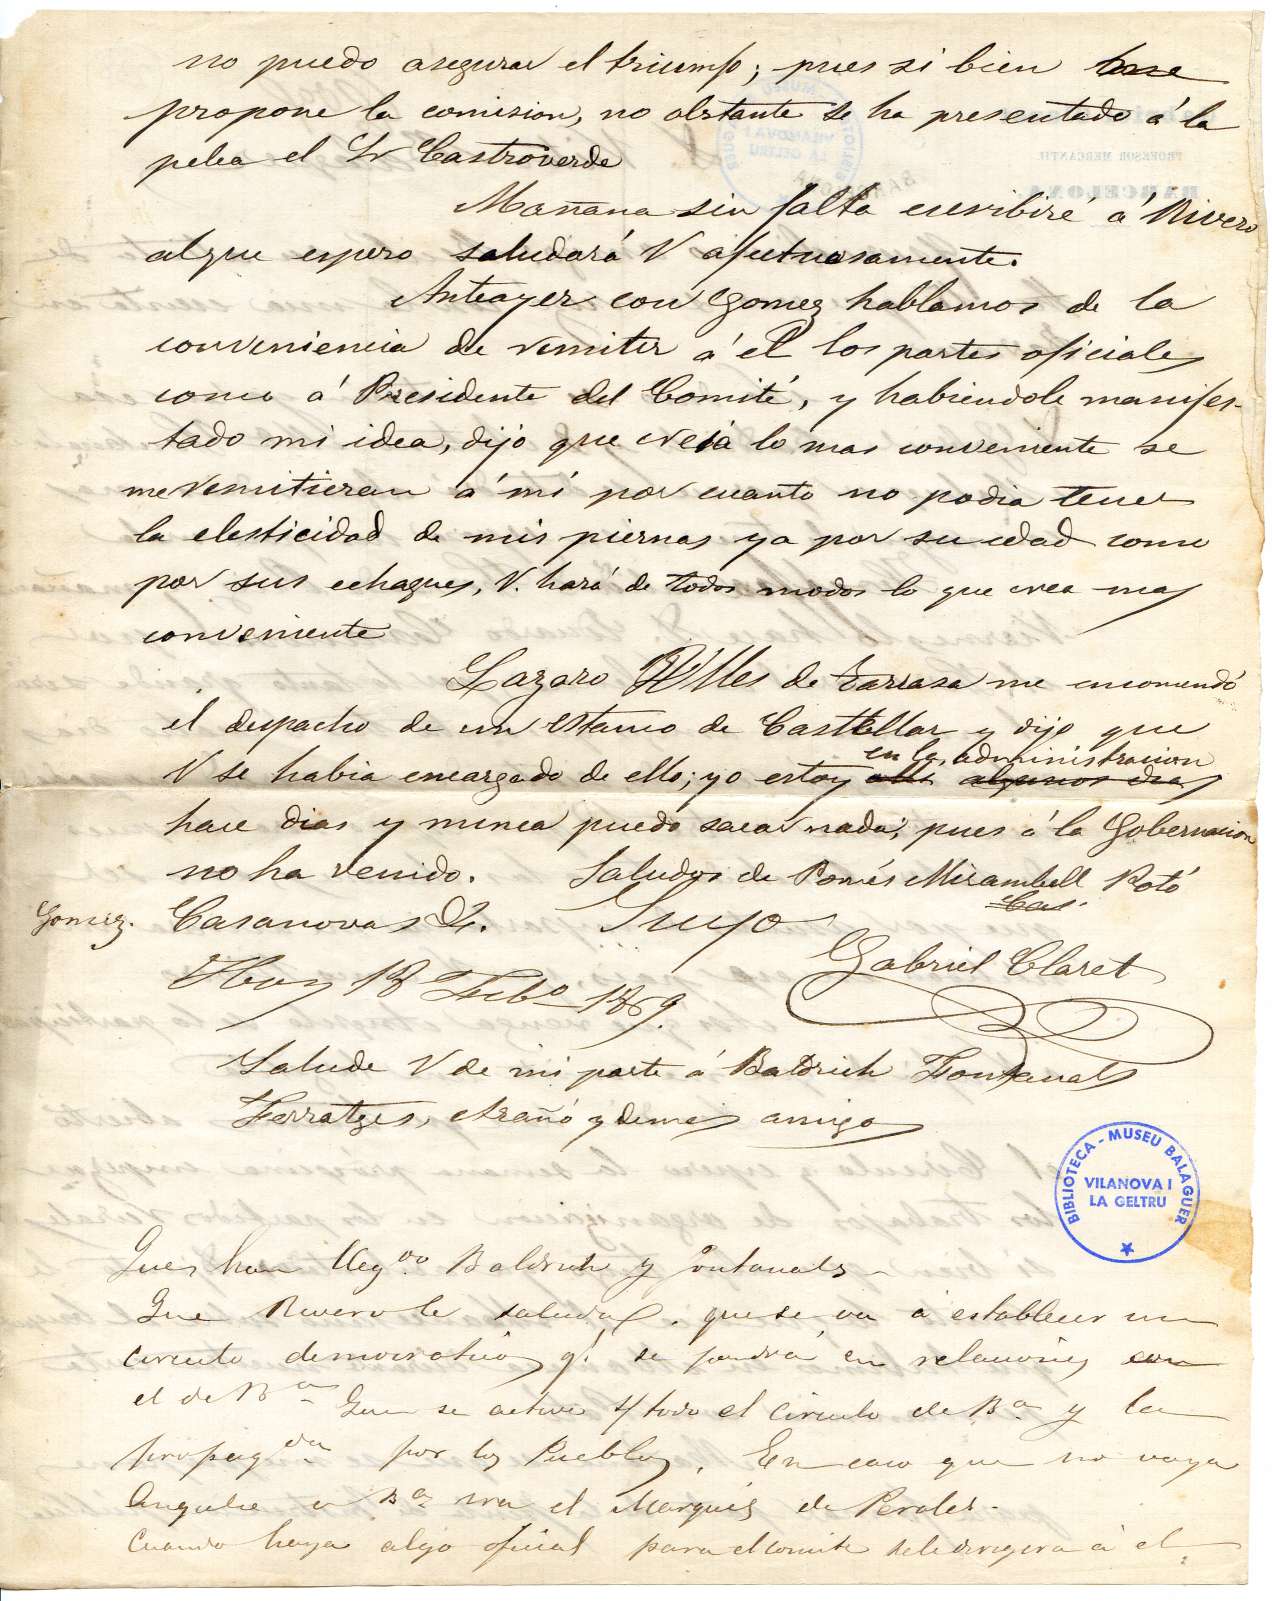 no puedo asegurar el triumfo; pues si bien
propone la comision, no obstante se ha presentado á la
pelea el Sr Castroverde
Mañana sin falta escribiré á Rivero
al que espero saludará V afectuosamente.
Anteayer con Gomez hablamos de la
conveniencia de remitir á él los partes oficiales
como á Presidente del Comité, y habiendole manifes-
tado mi idea, dijo que creia lo mas conveniente se
me remitieran á mí por cuanto no podia tener
la elesticidad de mis piernas ya por su edad como
por sus achaques, V. hará de todos modos lo que crea mas
conveniente
Lazaro Ulles de Tarrasa me encomendó
el despacho de un estanco de Castellar y dijo que
en la administracion
V se habia encargado de ello; yo estoy alli algunos dias
hace dias y nunca puedo sacar nada; pues á la Gobernacion
no ha venido. Saludos de Pomés Mirambell Rotó
Cas.
Gomez. Casanovas &. Suyo
Gabriel Claret
Hoy 18 Febo 1869.
Salude V de mi parte á Baldrich Fontanals
Ferratges, Arañó y demas amigos
Que han lleg.do Baldrich y Fontanals
Que Rivero le saluda, que se va a establecer un
circulo democratico q.e se pondrá en relaciones con
el de B.a Que se active s/todo el circulo de B.a y la
propag.da por los Pueblos. En caso que no vaya
Angulo a B.a ira el Marqués de Perales.
Cuando haya algo oficial para el comite se le dirigira á el.
BIBLIOTECA - MUSEU BALAGUER
VILANOVA I
LA GELTRU
PROFESOR MERCANTIL
BARCELONA